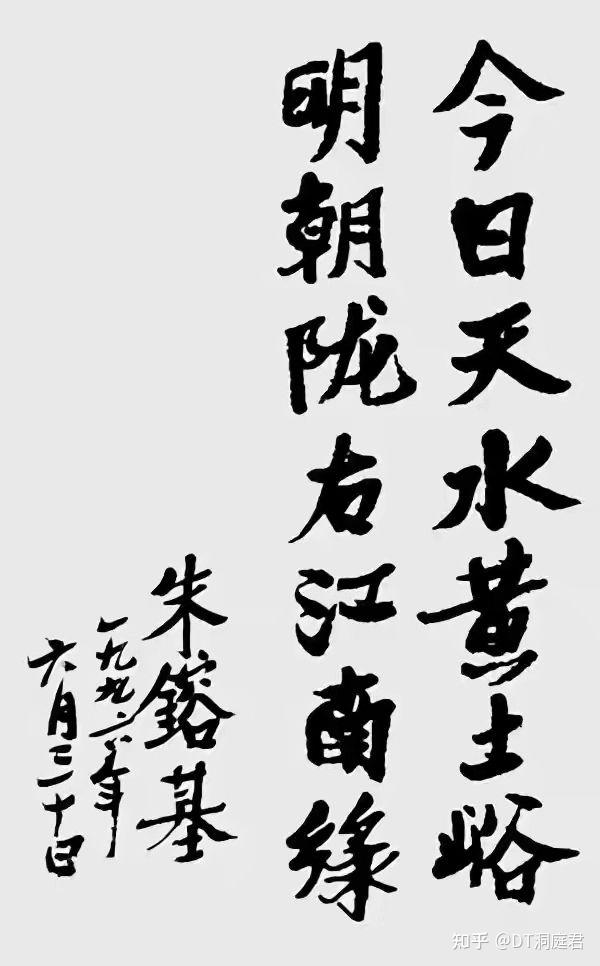 今日天水黄土峪
明朝陇右江南缘
朱鎔基
一九九六年
六月三十日
知乎 @DT洞庭君